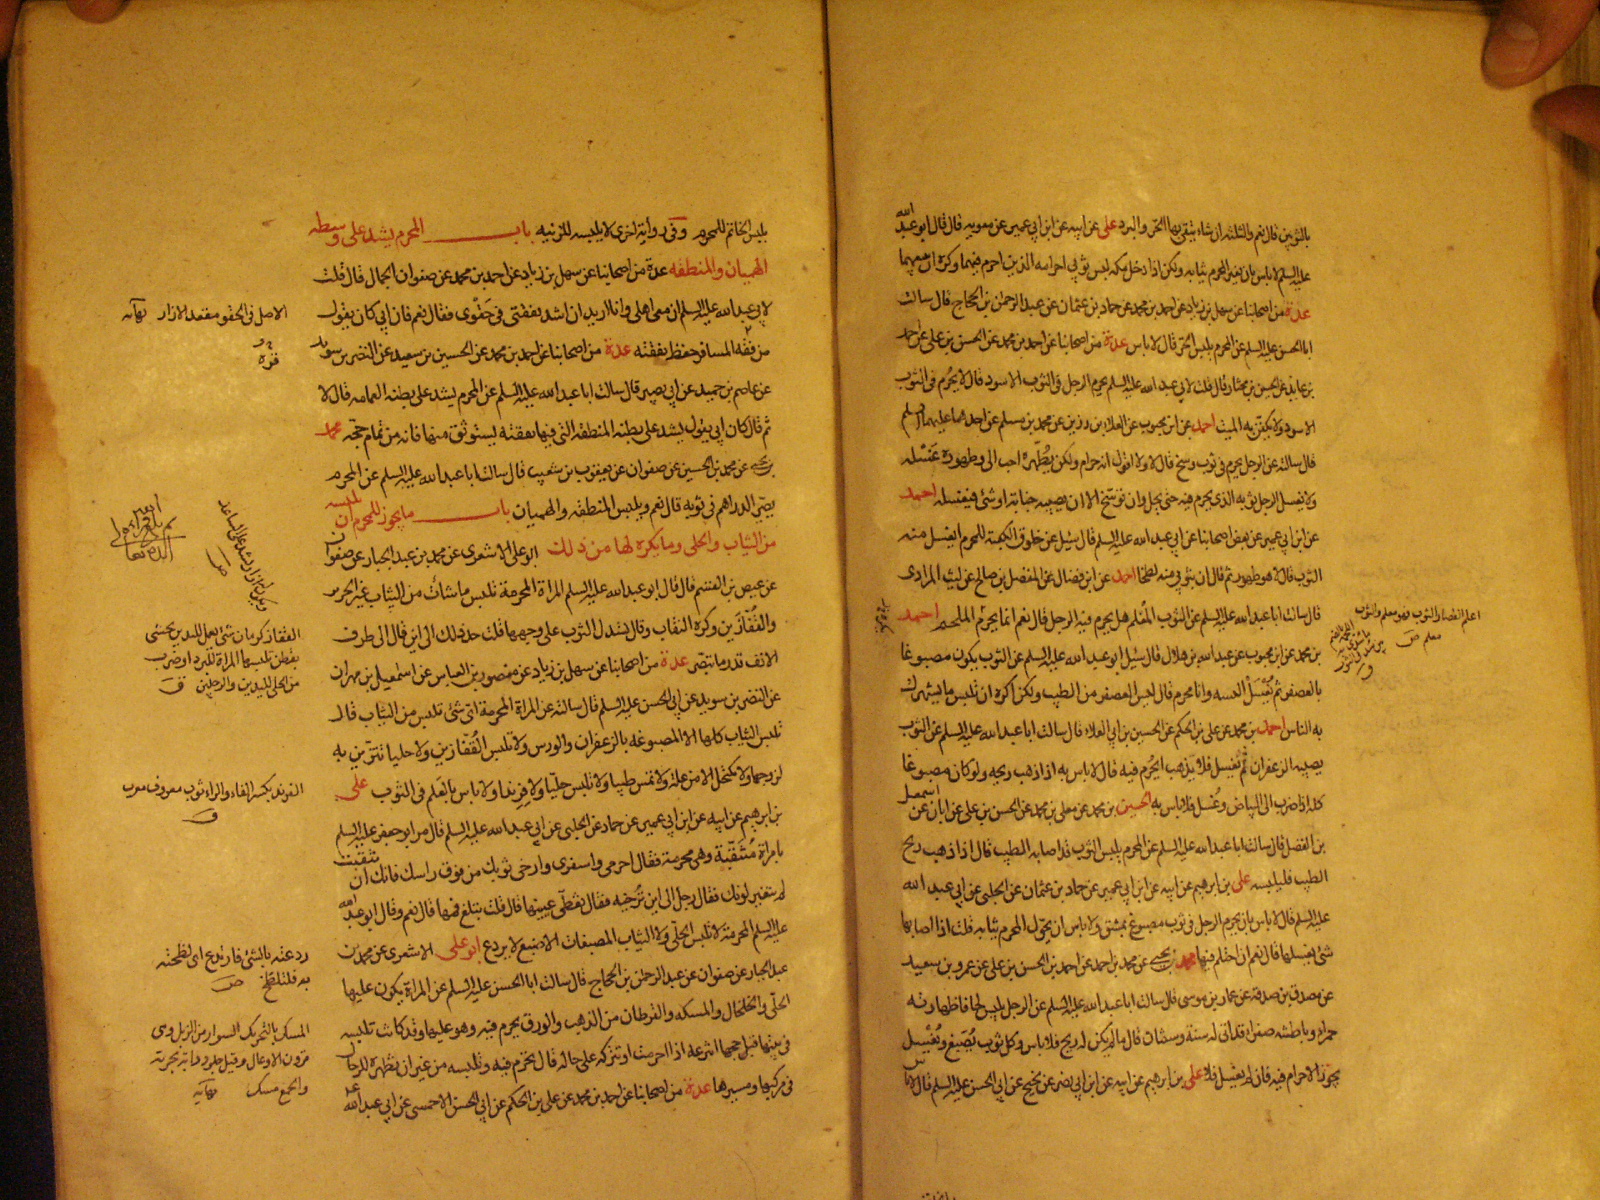 بالثوبين قال نعم والثلثة ان شاء يتقى بها الحر والبرد على عن ابيه عن ابن ابي عمير عن معوية قال قال ابو عبد الله
عليه السلم لا باس بان يغير المحرم ثيابه ولكن اذا دخل مكه لبس ثوبي احرامه الذين احرم فيهما وكره ان يبيعهما
عدة من اصحابنا عن سهل بن زياد عن احمد بن محمد عن حماد بن عثمان عن عبد الرحمن بن الحجاج قال سالت
ابا الحسن عليه السلم عن المحرم يلبس الخز قال لا باس عدة من اصحابنا عن احمد بن محمد عن الحسن بن على عن احمد
بن عايذ عن الحسين بن مختار قال قلت لابي عبد الله عليه السلم يحرم الرجل في الثوب الاسود قال لا يحرم في الثوب
الاسود ولا يكفن به الميت احمد عن ابن محبوب عن العلاء بن رزين عن محمد بن مسلم عن احدهما عليهما السلم
قال سالته عن الرجل يحرم في ثوب وسخ قال لا ولا اقول انه حرام ولكن يطهره احب الى وطهوره غسله
ولا يغسل الرجل ثوبه الذي يحرم فيه حتى يحل وان توسخ الا ان يصيبه جنابة او شئ فيغسله احمد
عن ابن ابي عمير عن بعض اصحابنا عن ابي عبد الله عليه السلم قال سئل عن خلوق الكعبة للمحرم ايغسل منه
الثوب قال لا هو طهور ثم قال ان بثوبي منه لطخا احمد عن ابن فضال عن المفضل بن صالح عن ليث المرادى
قال سالت ابا عبد الله عليه السلم عن الثوب المعلم هل يحرم فيه الرجل قال نعم انما يحرم الملحم احمد
بن محمد عن ابن محبوب عن عبد الله بن هلال قال سئل ابو عبد الله عليه السلم عن الثوب يكون مصبوغا
بالعصفر ثم يغسل البسه وانا محرم قال ليس العصفر من الطيب ولكن اكره ان تلبس ما يشهرك
به الناس احمد بن محمد عن على بن الحكم عن الحسين بن ابي العلاء قال سالت ابا عبد الله عليه السلم عن الثوب
يصيبه الزعفران ثم يغسل فلا يذهب ايحرم فيه قال لا باس به اذا ذهب ريحه ولو كان مصبوغا
كله اذا ضرب الى البياض وغسل فلا باس به الحسين بن محمد عن معلى بن محمد عن الحسن بن على عن ابان عن اسمعيل
بن الفضل قال سالت ابا عبد الله عليه السلم عن المحرم يلبس الثوب قد اصابه الطيب قال اذا ذهب ريح
الطيب فليلبسه على بن ابرهيم عن ابيه عن ابن ابي عمير عن حماد بن عثمان عن الحلبى عن ابي عبد الله
عليه السلم قال لا باس بان يحرم الرجل في ثوب مصبوغ بمشق ولا باس ان يحول المحرم ثيابه قلت اذا اصابها
شئ يغسلها قال نعم ان احتلم فيها محمد بن يحيى عن محمد بن احمد عن احمد بن الحسن بن على عن عمرو بن سعيد
عن مصدق بن صدقة عن عمار بن موسى قال سالت ابا عبد الله عليه السلم عن الرجل يلبس لحافا ظهارته
حمراء وباطنته صفراء قد اتى له سنة وسنتان قال ما لم يكن له ريح فلا باس وكل ثوب يصبغ ويغسل
يجوز الاحرام فيه فان لم يغسل فلا على بن ابرهيم عن ابيه عن ابن ابي نصر عن نجيح عن ابي الحسن عليه السلم قال لا باس
اعلم القصار الثوب فهو معلم والثوب
معلم ص
يلبس الخاتم للمحرم وفي رواية اخرى لا يلبسه للزينه باب المحرم يشد على وسطه
الهميان والمنطقه عدة من اصحابنا عن سهل بن زياد عن احمد بن محمد عن صفوان الجمال قال قلت
لابي عبد الله عليه السلم ان معى اهلى وانا اريد ان اشد نفقتى في حقوى فقال نعم فان ابي كان يقول
من فقه المسافر حفظ نفقته عدة من اصحابنا عن احمد بن محمد عن الحسين بن سعيد عن النضر بن سويد
عن عاصم بن حميد عن ابي بصير قال سالت ابا عبد الله عليه السلم عن المحرم يشد على بطنه العمامه قال لا
ثم قال كان ابي يقول يشد على بطنه المنطقه التى فيها نفقته يستوثق منها فانه من تمام حجه محمد
بن يحيى عن محمد بن الحسين عن صفوان عن يعقوب بن شعيب قال سالت ابا عبد الله عليه السلم عن المحرم
يصر الدراهم في ثوبه قال نعم ويلبس المنطقه والهميان باب ما يجوز للمحرمة ان تلبسه
من الثياب والحلى وما يكره لها من ذلك ابو على الاشعرى عن محمد بن عبد الجبار عن صفوان
عن عيص بن القسم قال قال ابو عبد الله عليه السلم المراة المحرمة تلبس ما شاءت من الثياب غير الحرير
والقفازين وكره النقاب وقال تسدل الثوب على وجهها قلت حد ذلك الى اين قال الى طرف
الانف قدر ما تبصر عدة من اصحابنا عن سهل بن زياد عن منصور بن العباس عن اسمعيل بن مهران
عن النضر بن سويد عن ابي الحسن عليه السلم قال سالته عن المراة المحرمة اى شئ تلبس من الثياب قال
تلبس الثياب كلها الا المصبوغه بالزعفران والورس ولا تلبس القفازين ولا حليا تتزين به
لزوجها ولا تكتحل الا من علة ولا تمس طيبا ولا تلبس حليا ولا فرندا ولا باس بالعلم في الثوب على
بن ابرهيم عن ابيه عن ابن ابي عمير عن حماد عن الحلبى عن ابي عبد الله عليه السلم قال مر ابو جعفر عليه السلم
بامراة متنقبة وهى محرمة فقال احرمى واسفرى وارخى ثوبك من فوق راسك فانك ان تنقبت
لم يتغير لونك فقال رجل الى اين ترخيه فقال تغطى عينيها قال قلت يبلغ فمها قال نعم وقال ابو عبد الله
عليه السلم المحرمة لا تلبس الحلى ولا الثياب المصبغات الا صبغ لا يردع ابو على الاشعرى عن محمد بن
عبد الجبار عن صفوان عن عبد الرحمن بن الحجاج قال سالت ابا الحسن عليه السلم عن المراة يكون عليها
الحلى والخلخال والمسكه والقرطان من الذهب والورق يحرم فيه وهو عليها وقد كانت تلبسه
في بيتها قبل حجها اتنزعه اذا احرمت او تتركه على حاله قال يحرم فيه وتلبسه من غير ان تظهره للرجال
في مركبها ومسيرها عدة من اصحابنا عن احمد بن محمد عن على بن الحكم عن ابي الحسن الاحمسى عن ابي عبد الله
الاصل في الحقو معقد الازار نهاية
القفاز كرمان شئ يعمل لليدين يحشى
بقطن تلبسها المراة للبرد او ضرب
من الحلى لليدين والرجلين ق
الفرند بكسر الفاء والراء ثوب معروف معرب
ق
ردعته بالشئ فارتدع اى لطخته
به فتلطخ ص
المسك بالتحريك السوار من الذبل وهى
قرون الاوعال وقيل جلود دابة بحرية
والجمع مسك نهاية